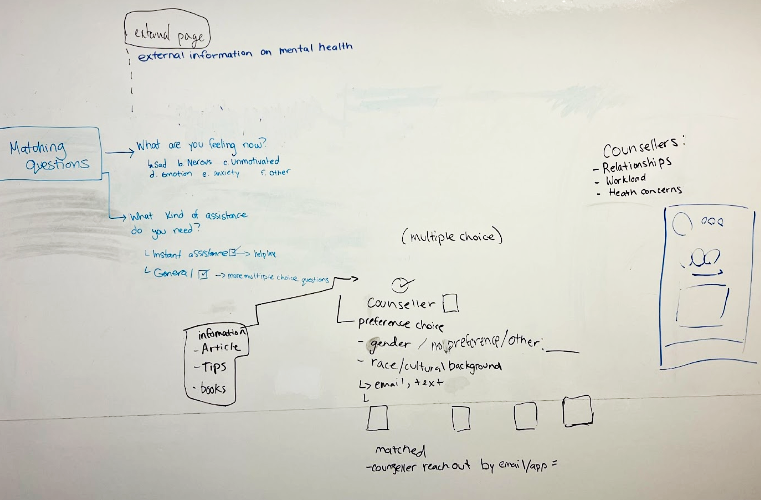 external page
external information on mental health
Matching
questions
What are you feeling now?
a. Sad b. Nerous c. Unmotivated
d. Emotion e. anxiety f. other
What kind of assistance
do you need?
Instant assistance → helpline
General → more multiple choice questions
(multiple choice)
Counsellor
preference choice
- gender / no preference / other: ____
- race/cultural background
↳ email, text
information
- Article
- Tips
- books
matched
- counseller reach out by email/app =
Counsellers:
- Relationships
- Workload
- Heath concerns